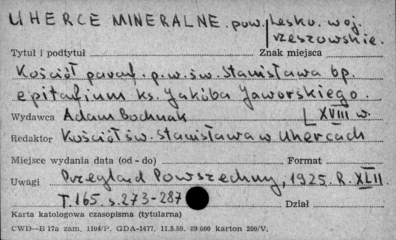 UHERCE MINERALNE. pow. Lesko. woj.
rzeszowskie.
Tytuł i podtytuł Znak miejsca
Kościół paraf. p.w. św. Stanisława bp.
epitafium ks. Jakóba Jaworskiego.
Wydawca Adam Bochnak XVIII w.
Redaktor Kościół św. Stanisława w Uhercach
Miejsce wydania data (od - do) Format
Uwagi Przegląd Powszechny, 1925. R. XLII
T. 165. s. 273-287 Dział
Karta katologowa czasopisma (tytularna)
CWD—B 17a zam. 1104/P. GDA-1477. 11.5.50. 29 600 karton 200/V.